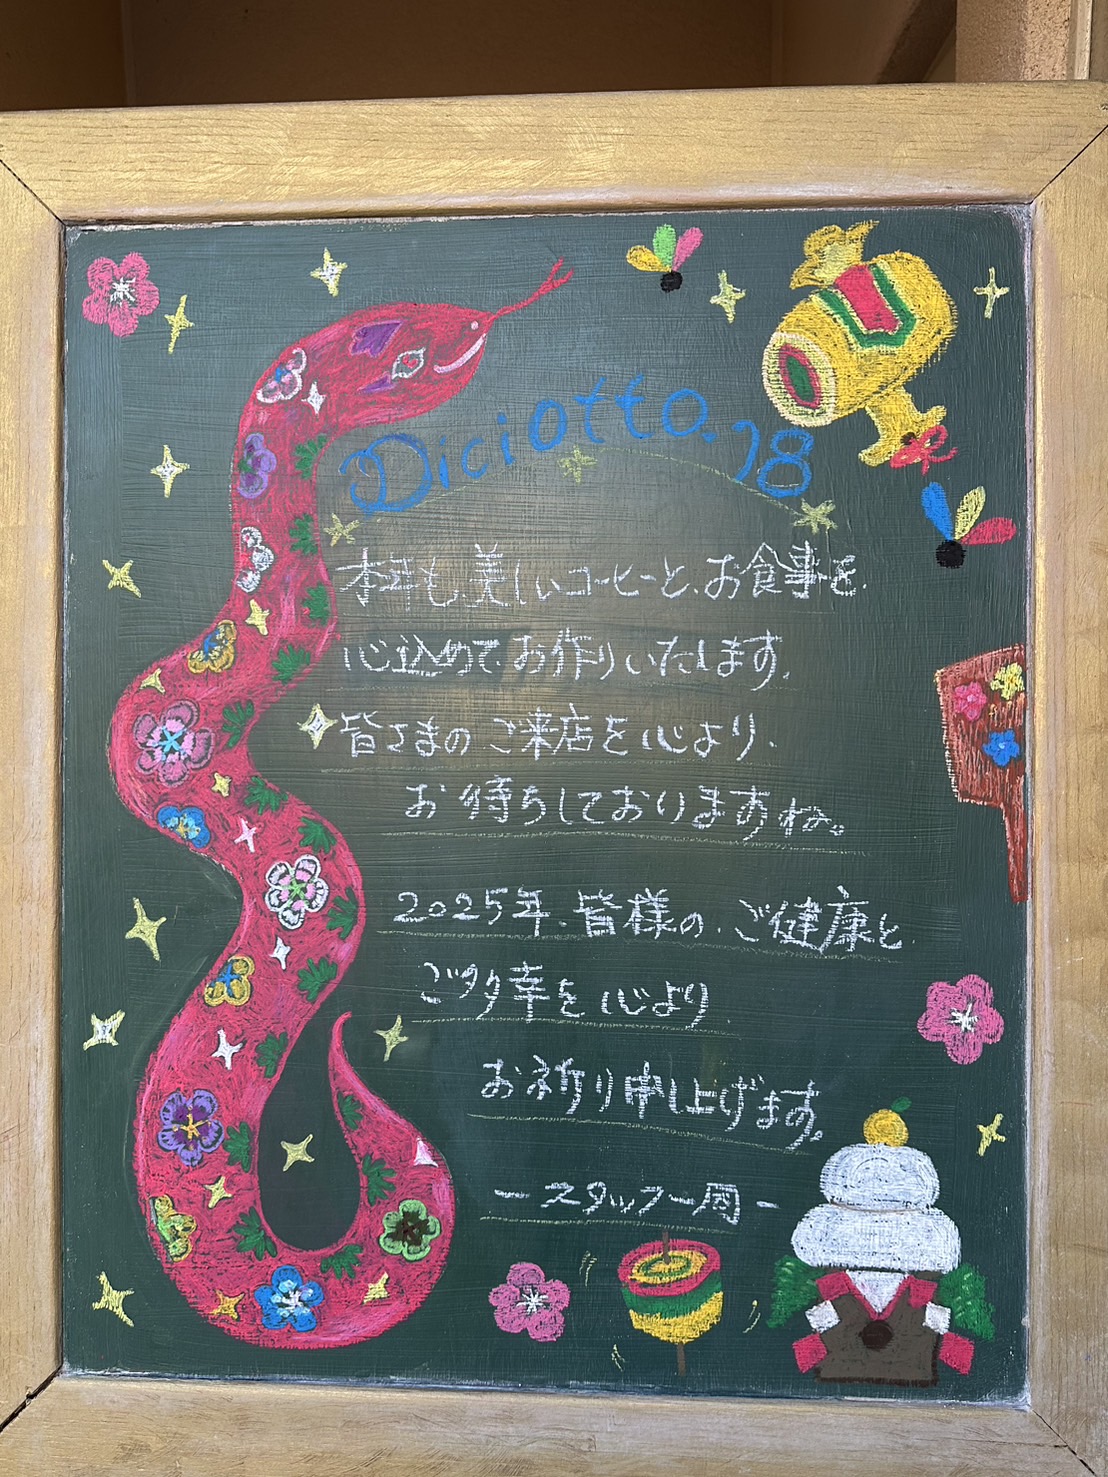 Diciotto.18
本年も、美しいコーヒーと、お食事を、
心込めて、お作りいたします。
皆さまの ご来店を 心より、
お待ちしておりますね。
2025年、皆様の、ご健康と、
ご多幸を 心より
お祈り申し上げます。
－スタッフ一同－